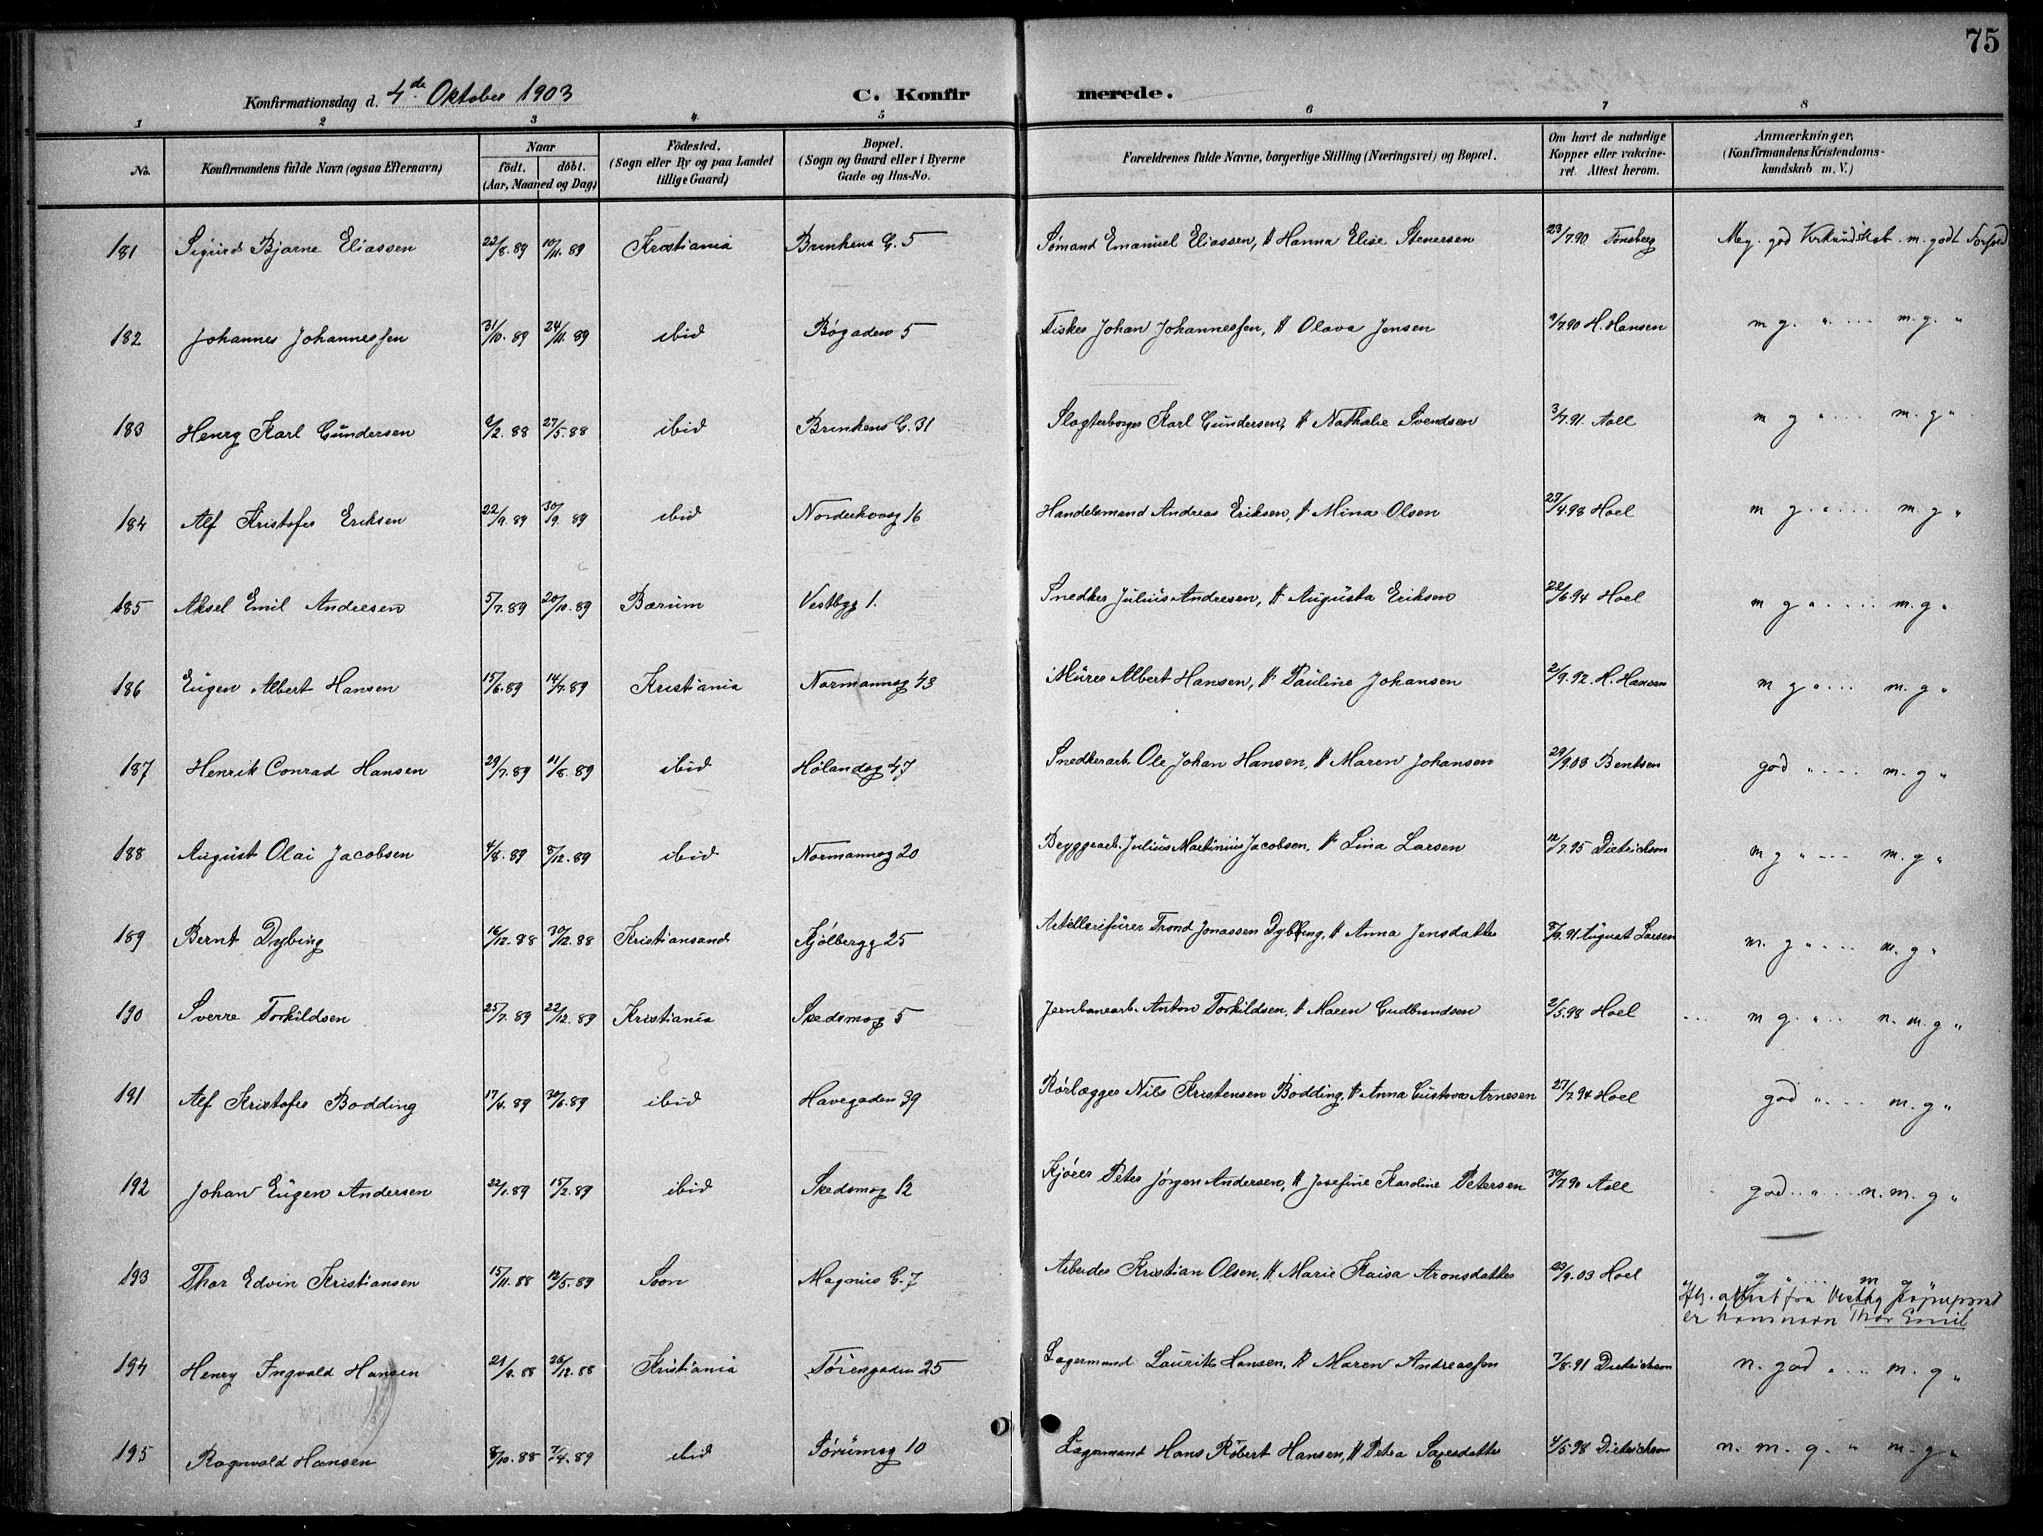 75
Konfirmationsdag d. 4de Oktober 1903 C. Konfirmerede.
1 2 3 4 5 6 7 8
No. Konfirmandens fulde Navn (ogsaa Efternavn) Naar født. døbt. (Aar, Maaned og Dag) Fødested. (Sogn eller By og paa Landet tillige Gaard) Bopæl. (Sogn og Gaard eller i Byerne Gade og Hus-No. Forældrenes fulde Navne, borgerlige Stilling (Næringsvei) og Bopæl. Om havt de naturlige Kopper eller vakcineret. Attest herom. Anmærkninger, (Konfirmandens Kristendomskundskab m. V.)
181 Sigurd Bjarne Eliassen 22/8.89 10/11.89 Kristiania Brinkens G. 5 Sømand Emanuel Eliassen, H Hanna Elise Stenersen 23/7.90 Tønsberg Meg. god Kkundskab. m. godt Forhold
182 Johannes Johannessen 31/10.89 24/11.89 ibid Bøgaden 5 Fisker Johan Johannessen, H Olava Jensen 9/7.90 H. Hansen m g. " ... m. g. "
183 Henry Karl Gundersen 9/2.88 27/5.88 ibid Brinkens G. 31 Slagterborger Karl Gundersen, H Nathalie Svendsen 3/7.91. Aall m g " ... m. g "
184 Alf Kristofer Eriksen 22/9.89 30/9.89 ibid Norderhovsg 16 Handelsmand Andreas Eriksen, H Mina Olsen 27/4.98 Hoel m g. " ... m. g "
185 Aksel Emil Andresen 5/7.89 20/10.89 Bærum Vestbyg 1. Snedker Julius Andresen, H Augusta Eriksen 22/6.94 Hoel m g " .... m. g "
186 Eugen Albert Hansen 15/6.89 14/7.89 Kristiania Normannsg 43 Murer Albert Hansen, H Pauline Johansen 2/9.92. H. Hansen m g " ... m. g "
187 Henrik Conrad Hansen 29/7.89 11/8.89 ibid Hølandsg 47 Snedkerarb. Ole Johan Hansen, H Maren Johansen 29/9.03 Bentsen god " .... m. g "
188 August Olai Jacobsen 4/8.89 8/12.89 ibid Normannsg 20 Bryggearb. Julius Martinius Jacobsen, H Lina Larsen 12/7.95 Dietrichson m g " ... m. g "
189 Bernt Dybing 16/12.88 30/12.88 Kristiansand Kjølbergg 25 Artillerifurer Trond Jonassen Dybing, H Anna Jensdatter 8/9.91 August Larsen m. g " ... m. g "
190 Sverre Torkildsen 25/7.89 22/12.89 Kristiania Skedsmog 5 Jernbanearb. Anton Torkildsen, H Maren Gudbrandsen 2/5.98 Hoel ... m g. " .. n. m. g "
191 Alf Kristofer Bodding 17/4.89 30/6.89 ibid Havegaden 39 Rørlægger Nils Kristensen Bodding, H Anna Gustava Arnesen 27/7.94 Hoel god " ... m. g "
192 Johan Eugen Andersen 22/1.89 15/2.89 ibid Skedsmog 12 Kjører Peter Jørgen Andersen, H Josefine Karoline Petersen 30/7.90 Aall god " ... n. m. g "
193 Thor Edvin Kristiansen 15/11.88 12/5.89 Soon Magnus G. 7 Arbeider Kristian Olsen, H Marie Kaisa Aronsdatter 23/9.03 Hoel g " ... m g "
Ifl. attest fra Vestby Sogneprest
er hans navn Thor Emil
194 Henry Ingvald Hansen 21/9.88 26/12.88 Kristiania Tøiengaden 25 Lagermand Laurits Hansen, H Maren Andreassen 7/8.91 Dietrichson n. god " ... m. g "
195 Ragnvald Hansen 8/10.88 7/4.89 ibid Sørumsg 10 Lagermand Hans Robert Hansen, H Petra Saxesdatter 4/5.98 Dietrichson n. m. g. " m. g "